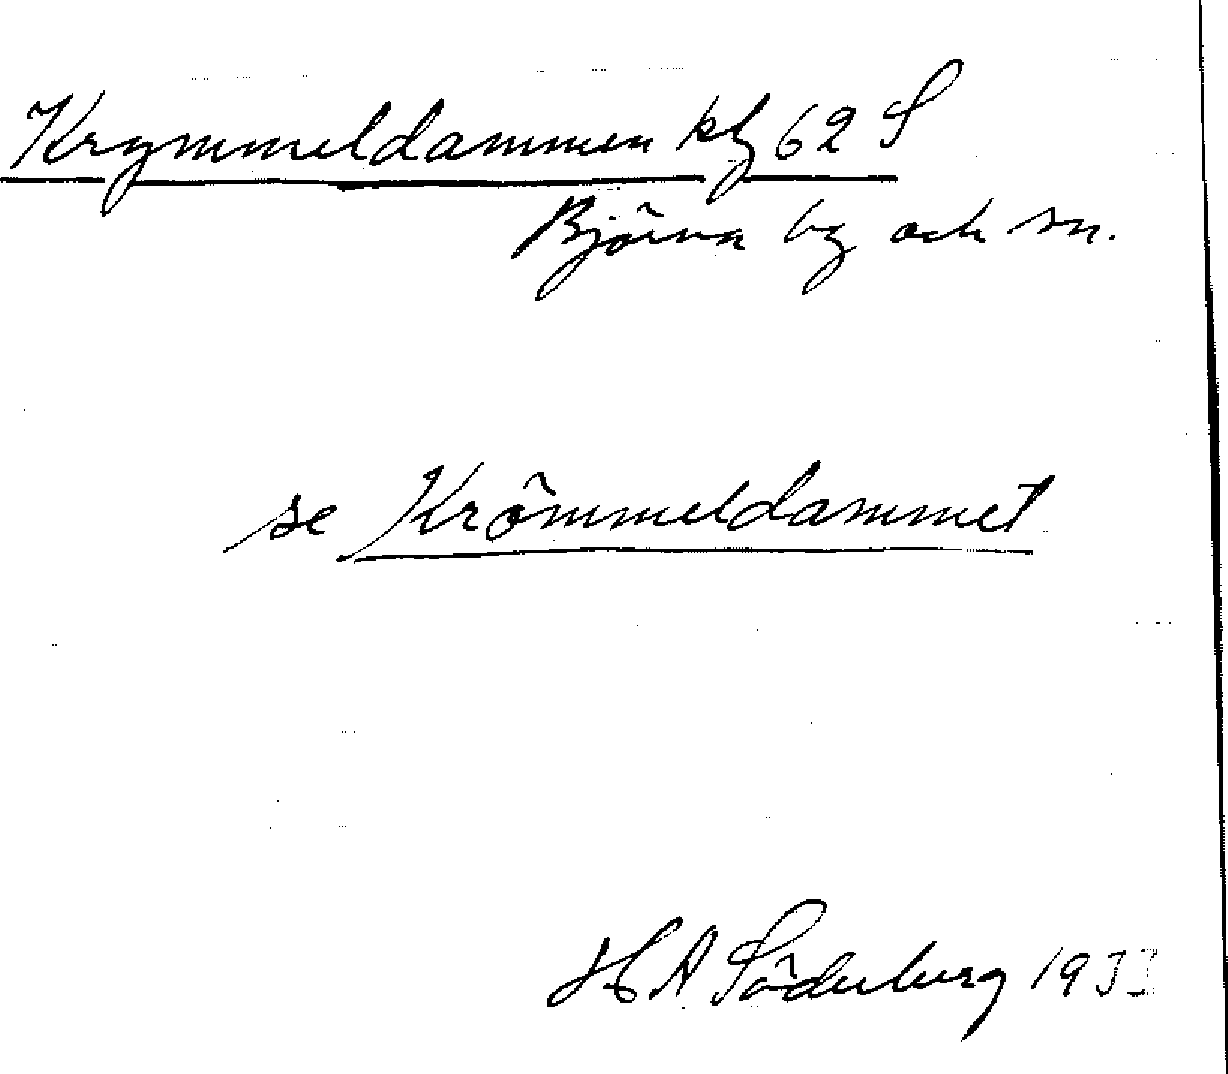 Krymmeldammen kf 62 S
Björna by och sn.
se Krömmeldammet
H A Söderberg 1933